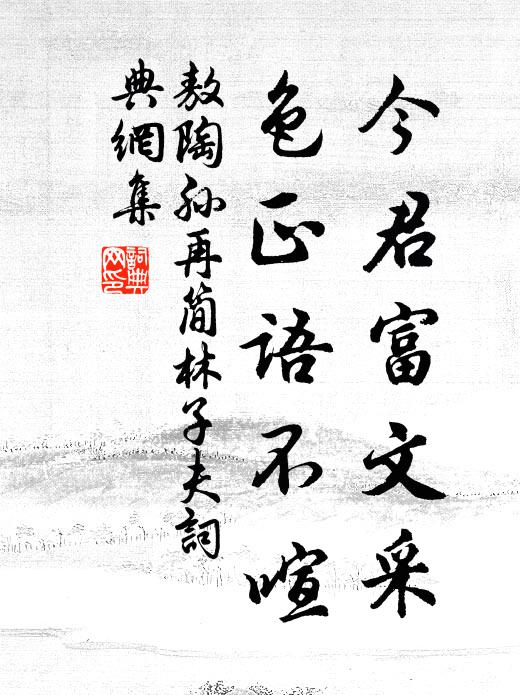 今君富文采
色正语不喧
敖陶孙再简林子夫詞
典網集
詞典網印